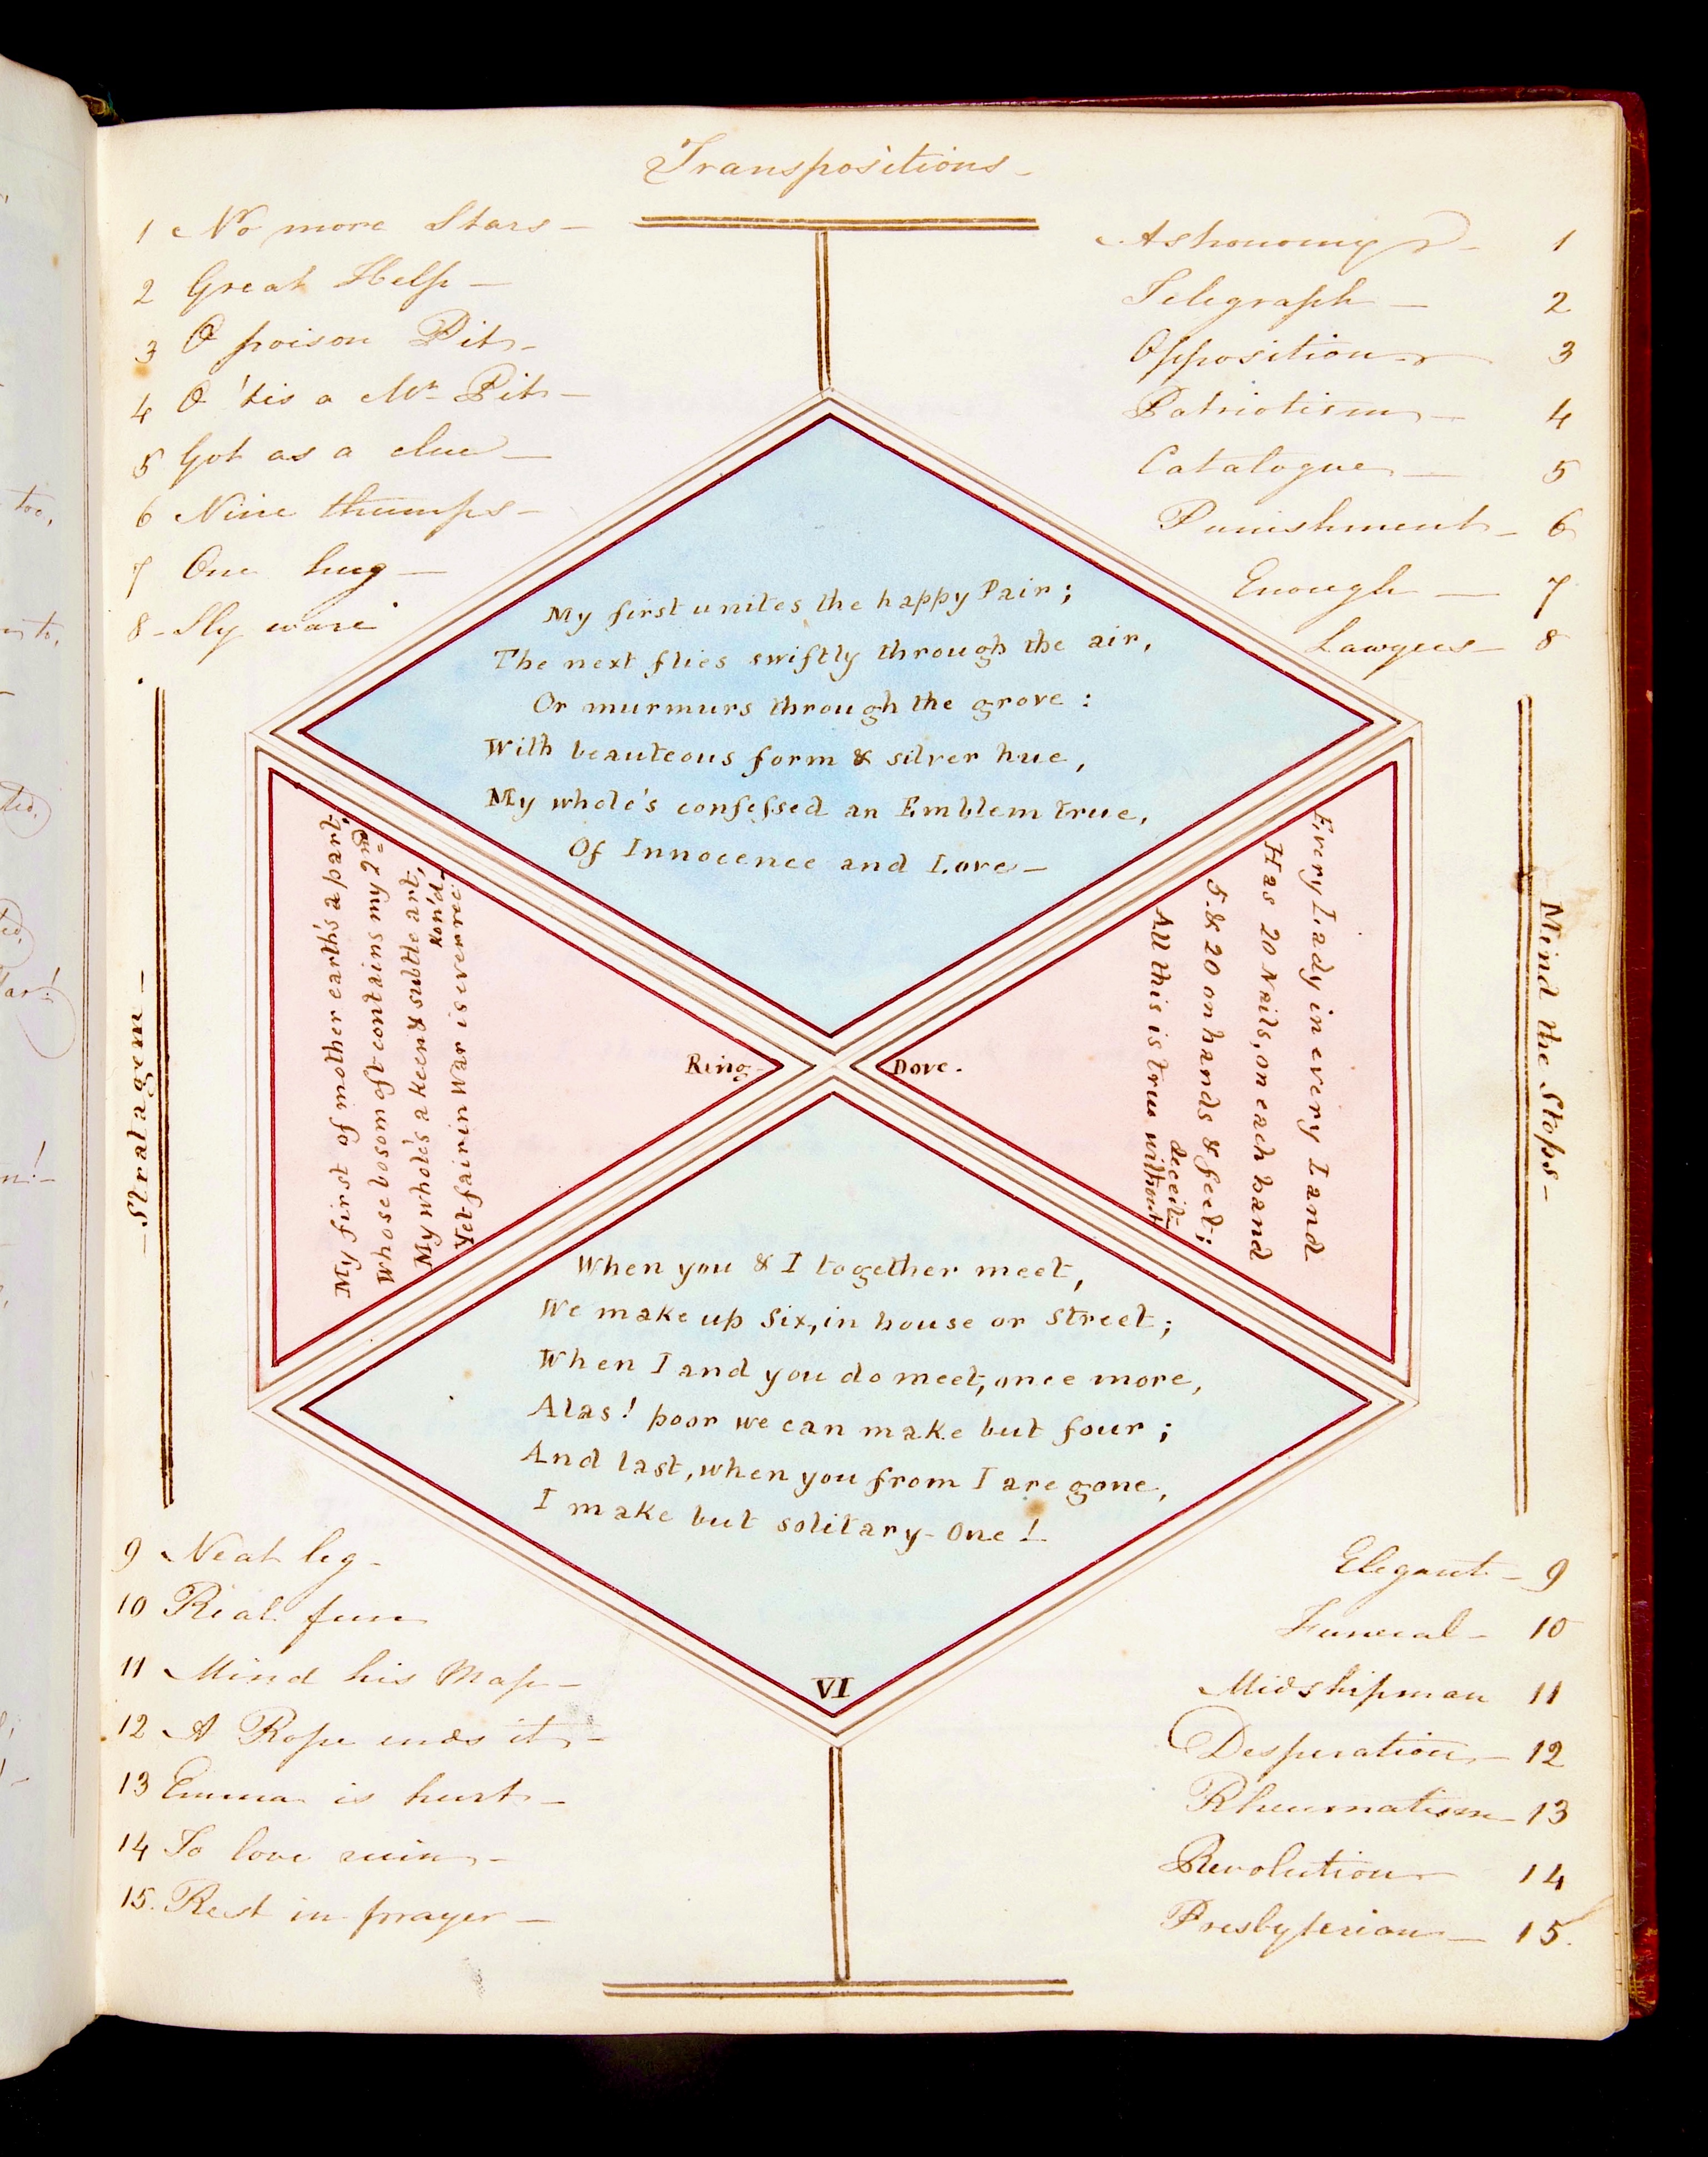 Transpositions
1 No more Stars
2 Great Help
3 O poison Pit
4 O 'tis a Mr. Pit
5 Got as a clue
6 Nine thumps
7 One hug
8 Sly ware
Astronomy 1
Telegraph 2
Opposition 3
Patriotism 4
Catalogue 5
Punishment 6
Enough 7
Lawyers 8
My first unites the happy Pair;
The next flies swiftly through the air,
Or murmurs through the grove:
With beauteous form & silver hue,
My whole's confessed an Emblem true,
Of Innocence and Love
Stratagem
My first of mother earth's a part,
Whose bosom oft contains my 2nd
My whole's a keen & subtle art,
Yet fair in War is ever rec
kon'd
Ring
Dove.
Every Lady in every Land
Has 20 Nails, on each hand
5 & 20 on hands & feet;
All this is true without
deceit
Mind the Stops
When you & I together meet,
We make up Six, in house or Street;
When I and you do meet, once more,
Alas! poor we can make but four;
And last, when you from I are gone,
I make but solitary One!
VI
9 Neat leg
10 Real fun
11 Mind his Map
12 A Rope ends it
13 Emma is hurt
14 To love ruin
15. Rest in prayer
Elegant 9
Funeral 10
Midshipman 11
Desperation 12
Rheumatism 13
Revolution 14
Presbyterian 15.